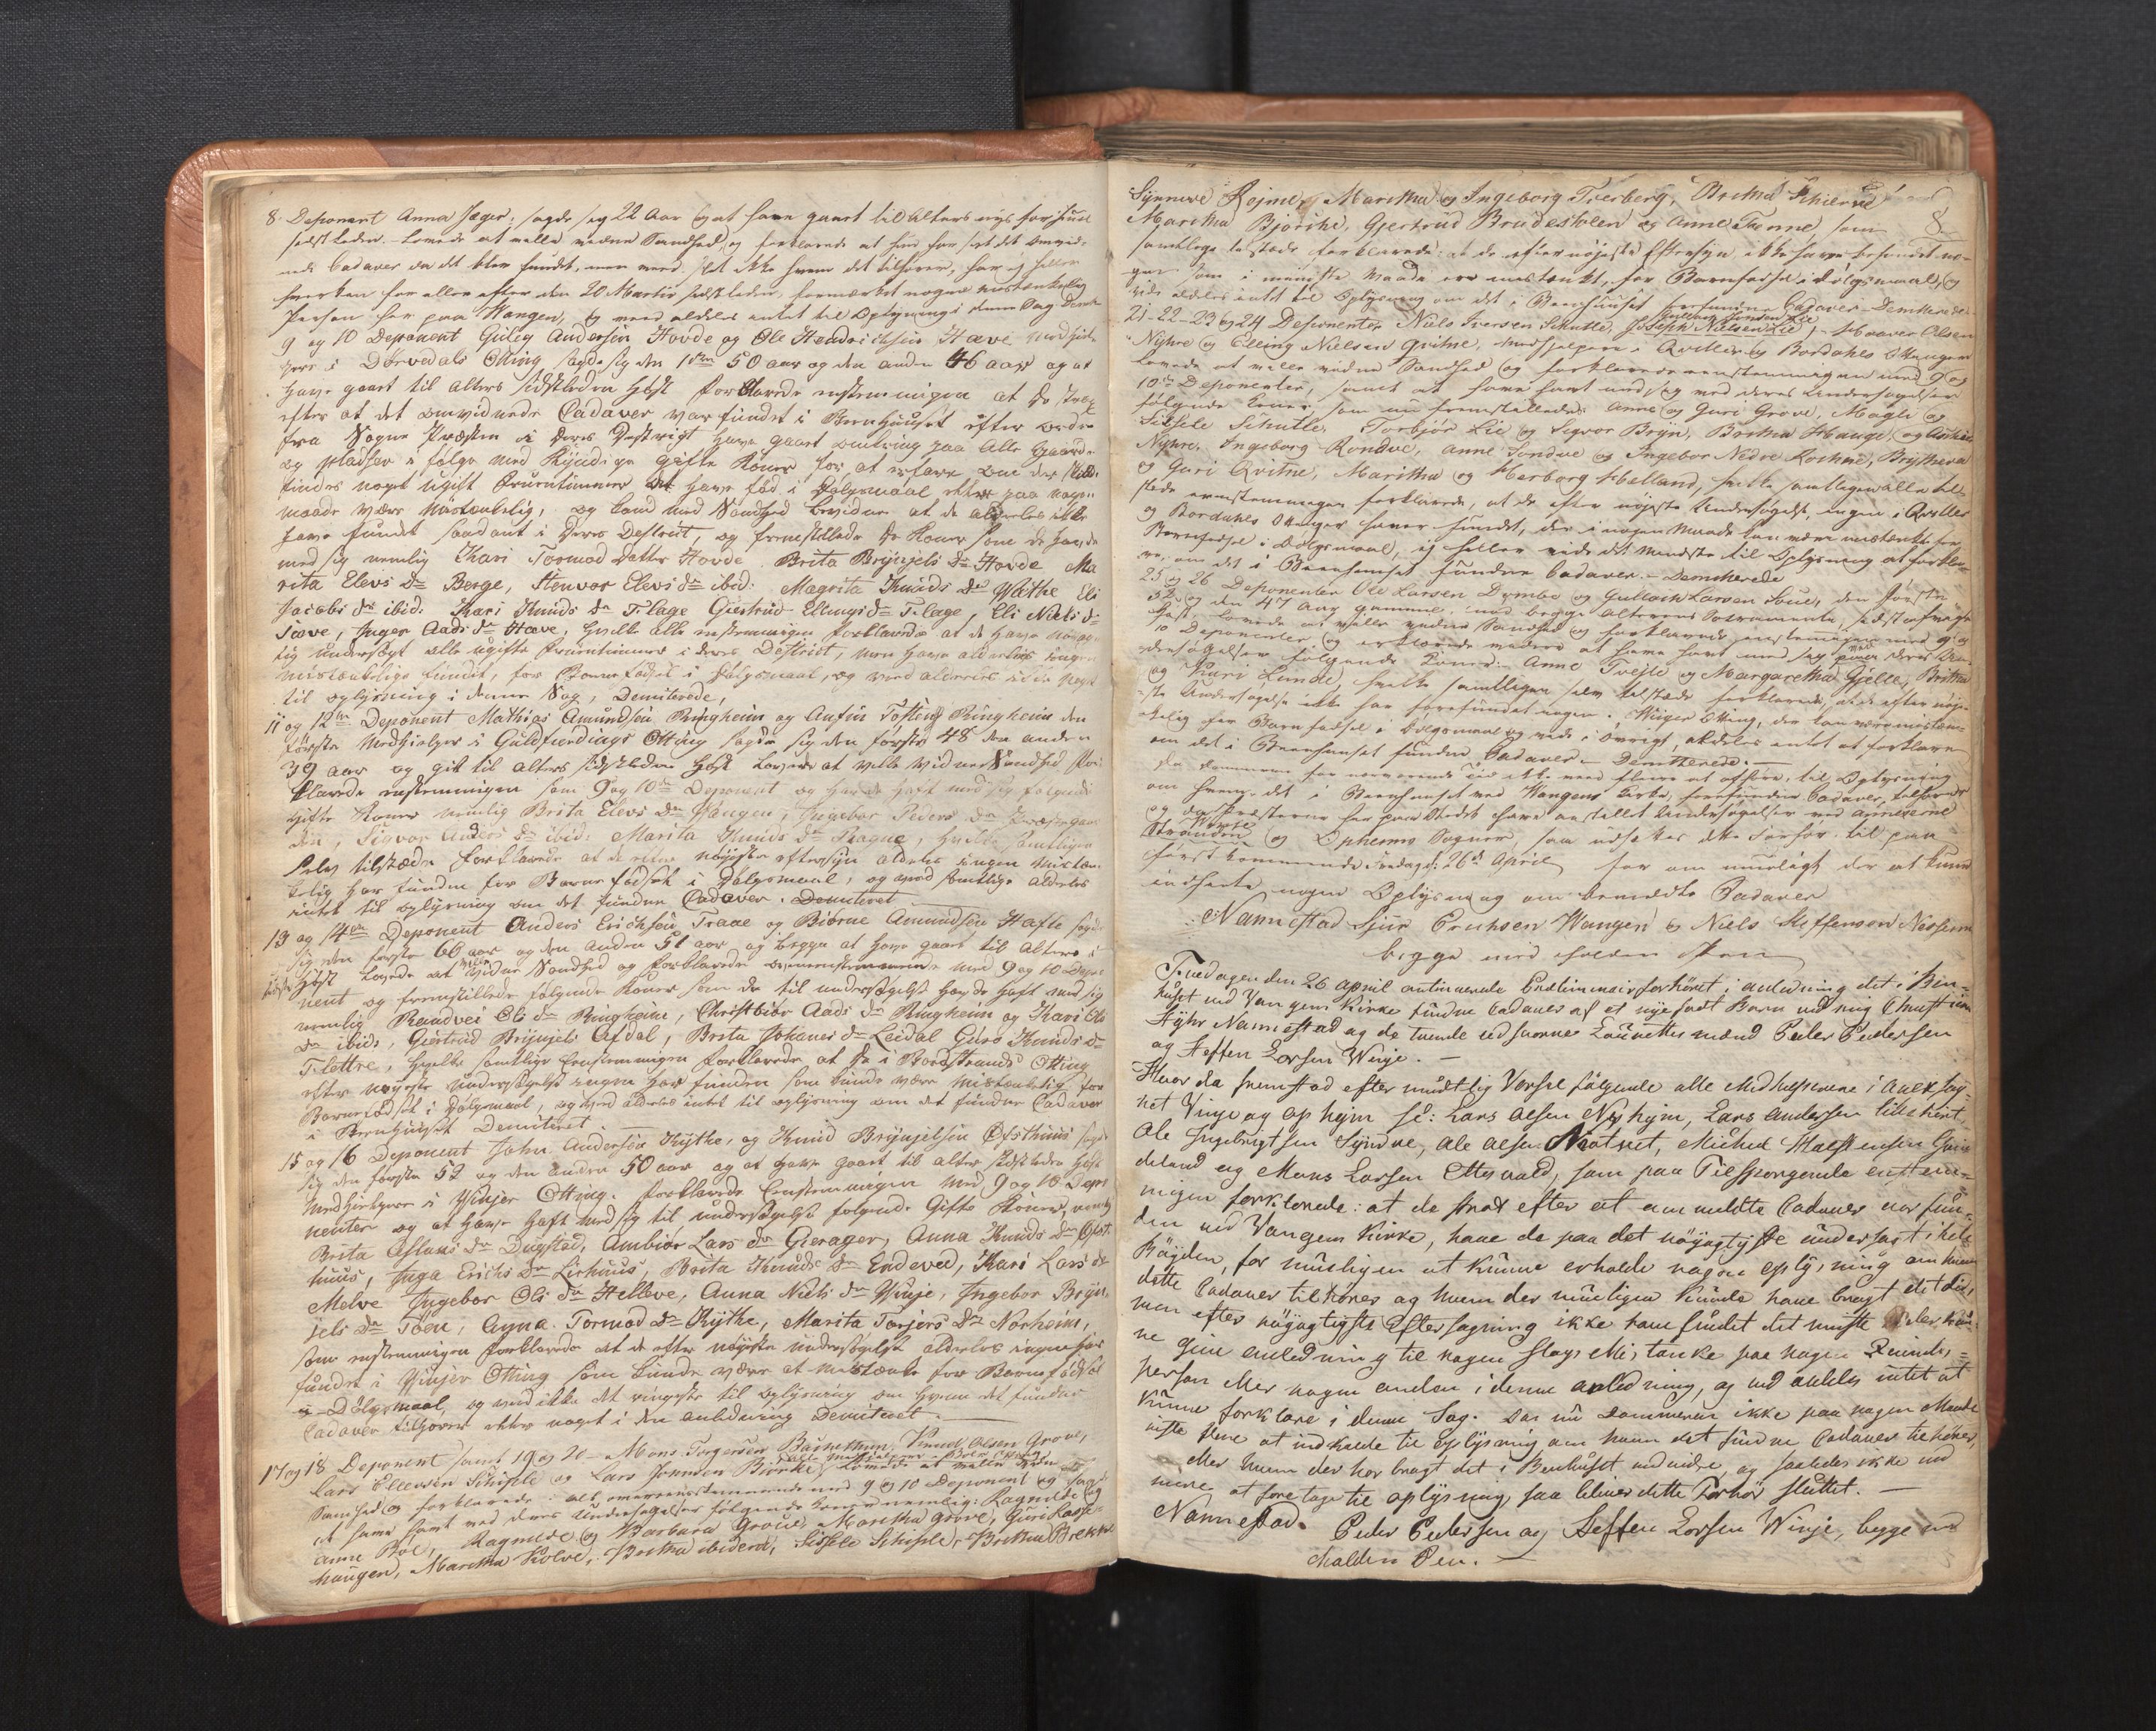 8. Deponent Anna Jæger, sagde sig 22 Aar og at have gaaet til Alters
sidstleden. Lovede at ville vidne Sandhed, og forklarede at hun har seet det omvid-
nede Cadaver da det blev fundet, men veed slet ikke hvem det tilhører, har ej heller
hverken før eller efter den 20 Martii sidstleden, formærket nogen mistænkelig
Person her paa Wangen, og veed aldeles intet til Oplysning i denne Sag Demit
9 og 10 Deponent Guley Andersen Hovde og Ole Hendrichsen Hæve Medhiel-
pere i Dørvedals Otting sagde sig den 1ste 50 aar og den anden 46 aar og at
have gaaet til alters sidstleden Høst forklarede enstemmigen at de strax
efter at det omvidnede Cadaver var fundet i Beenhuuset efter ordre
fra Sogne Præsten i deres Destrigt have gaaet omkring paa alle Gaarde
og pladser i følge med Kyndige gifte Koner for at erfare om der skulde
findes noget ugift Fruentimmer at have fød i Dølgsmaal eller paa nogen
maade være mistænkelig, og kand med Sandhed bevidne at de aldeles ikke
have fundt saadant i deres Destrict, og fremstillede de Koner som de havde
med sig nemlig Kari Tormod Datter Hovde Brita Brynjels Dr Hovde Ma
rita Elevs Dr Berge, Stenvor Elevs dr ibid: Magrita Knuds Dr Wæthe Eli
Jacobs dr ibid: Kari Knuds dr Flage Giertrud Elings dr Flage, Eli Niels dr
Tæve, Inger Aads dr Hæve, hvilke alle enstemmigen forklarede at de have nøyag-
tig undersøgt alle ugifte Fruentimmer i deres Destrict, men have aldeles ingen
mistænkelige fundet, for Barnefødsel i Dølgsmaal, og veed aldeles intet
til oplysning i denne Sag, Demiterede,
11 og 12te Deponent Mathias Amundsen Ringheim og Anfin Tosten Ringheim den
første Medhielper i Guldfierdings Otting sagde sig den første 48 den anden
39 aar og gik til alters sidstleden Høst Lovede at ville vidne Sandhed for-
klarede enstemmigen som 9 og 10de Deponent og havde haft med sig følgende
gifte Koner nemlig Brita Elevs dr Wangen, Ingebor Peders dr Præstegaar
den, Sigvor Anders dr ibid: Marita Knuds dr Rogne, hvilke samtligen
selv tilstæde forklarede at de efter nøyeste eftersyn aldeles ingen mistæn-
kelig har funden for Barnefødsel i Dølgsmaal, og veed samtlige aldeles
intet til oplysning om det fundne Cadaver. Demiteret
13 og 14de Deponent Anders Erichsen Traae og Biørne Amundsen Hafte sagde
sig den første 66 aar og den anden 51 aar og begge at have gaaet til Alters i
sidste Høst Lovede at ville vidne Sandhed og forklarede overenstemmende med 9 og 10 Depo-
nent og fremstillede følgende Koner som de til undersøgelse havde haft med sig
nemlig Randvei Ols dr Ringheim, Christbiør Aads dr Ringheim og Kari Ols
dr ibid, Giertrud Brynjels Afdal, Brita Johanes dr Leidal Guro Knuds dr
Flettre, hvilke samtlige Enstemmigen forklarede at de i Bordstrands Otting
efter nøyeste undersøgelse ingen har funden som kunde være mistænkelig for
Barnefødsel i Dølgsmaal, og veed aldeles intet til oplysning om det fundne Cadaver
i Beenhuuset Demiteret.
15 og 16 Deponent John Andersen Kythe, og Knud Brynjelsen Ofsthuus sagde
sig den første 52 og den anden 50 aar og at have gaaet til alter sidstleden Høst
Medhielpere i Winjer Otting. forklarede Eenstemmigen med 9 og 10 Depo
nenter og at have haft med sig til undersøgelse følgende Gifte Koner, nemlig
Brita Aslaks dr Dugstad, Ambiør Lars dr Gierager, Anna Knuds dr Ofst-
huus, Inga Erichs dr Lirhuus, Brita Knuds dr Endeved, Kari Lars dr
Melve Ingebor Ols dr Helleve, Anna Niels dr Winje, Ingebor Bryn-
jels dr Tøen, Agna Tormod dr Kythe, Marita Torjers dr Norheim,
som enstemmigen forklarede at de efter nøyeste undersøgelse aldeles ingen har
fundet i Winjer Otting som kunde være at mistænke for Barnefødsel
i Dølgsmaal, og veed ikke det ringeste til oplysning om hvem det fundne
Cadaver tilhører eller noget i den anledning Demiteret
17 og 18 Deponent samt 19 og 20 – Mons Torgersen Bakkethun, Knud Olsen Grove,
Lars Ellevsen Schiple og Lars Johnsen Biørke, Lovede at ville vidne
Sandhed og forklarede: alt overeensstemmende med 9 og 10 Deponent og sagde
at have havt med deres Undersøgelser følgende Koner nemlig: Ragnilde og
Anne Bøe, Ragnilde og Barbara Groue, Maritha Grove, Guri Lasse-
haugen, Maritha Kolve, Britha ibidem, Sissele Schiple, Britha Brekke
Synneve Rejme, Maritha og Ingeborg Tverberg, Britha Schierve
8
Maritha Bjørike, Gjertrud Brudestolen og Anne Tvenne, som
samtlige tilstæde forklarede: at de efter nøjeste Eftersyn ikke have befundet no-
gen som i mindste Maade er mistænkt, for Barnefødsel i dølgsmaal, og
vide aldeles intet til Oplysning om det i Beenhuuset forefundne Cadaver – Demitterede
21–22–23 og 24 Deponenter Niels Iversen Schutle, Joseph Nielsen Lie, Haaver Olsen
Nyhre og Elling Nielsen Qvitne, medhjelpere i Qvitler og Bordahls Ottinger
Lovede at ville vidne Sandhed og forklarede eenstemmigen med 9 og
10de Deponenter, samt at have havt med sig ved deres Undersøgelser
følgende Koner, som nu fremstillede: Anna og Guri Grove, Magli og
Sissele Schutle, Torbjør Lie og Segvor Bryn, Britha Hauge og
Nyhre, Ingeborg Rondve, Anne Sondve og Ingebor Nedre Lochne, Brytheva
og Guri Qvitne, Maritha og Herborg Helland, hvilke samtligen alle til-
stede eenstemmigen forklarede, at de efter nøjeste Undersøgelse, ingen i Qvitler
og Bordahls Ottinger haver fundet, der i nogen Maade kan være mistænkt for
Barnefødsel i Dølgsmaal, ej heller vide det mindste til Oplysning at forkla-
re, om det i Beenhuuset fundne Cadaver. – Demitterede
25 og 26 Deponenter Ole Larsen Dymbe og Gullach Larsen Soue, den første
52 og den 47 Aar gammel, nød begge alterens Sacramente, sidst afvigte
Høst, Lovede at ville vidne Sandhed og forklarede eenstemmigen med 9 og
10 Deponenter og erklærede videre at have havt med sig ved deres Un-
dersøgelser følgende Koner: Anne Tvejte og Margaretha Gjelle, Britha
og Kari Lunde, hvilke samtligen selv tilstede forklarede, at de efter nøje-
ste Undersøgelse ikke har forefundet nogen i Wiiger Otting, der kan være mistæn-
kelig for Barnefødsel i dølgsmaal og veed i øvrigt, aldeles intet at forklare
om det i Beenhuuset fundne Cadaver. – Demitterede. –
Da Dommeren for nærværende Tid ikke veed flere at afhøre, til Oplysning
om hvem det i Beenhuuset ved Wangens Kirke, forefundne Cadaver, tilhører
og da Præsterne her paa Stedet have anstillet Undersøgelser ved annexerne
og Ophems Sogner, saa udsettes dette Forhør til paa
først kommende Fredag d: 26de April for om mueligt der at kunde
indhente nogen Oplysning om bemeldte Cadaver
Nannestad Siur Erichsen Wangen og Niels Steffensen Nessem
begge med holden Pen
Fredagen den 26 april continuerede Præliminairforhøret i anledning det i Been-
huset ved Vangens Kirke fundne Cadaver af et nyefødt Barn ved mig Christian
Hyhr Nannestad og de tvende edsvorne Laurettesmænd Peder Pedersen
og Steffen Larsen Winje. –
Hvor da fremstod efter mundtlig Varsel følgende alle Medhelperne i Anex Sog-
net Vinje og Ophejm se: Lars Olsen Nyhejm, Lars Andersen Lillehært,
Ole Ingebrigtsen Tyndve, Ole Olsen Nætvet, Michel Halstensen Grin
deland og Mons Larsen Ettesvold, som paa Tilspørgende enstem-
migen forklarede: at de strax efter at anmeldte Cadaver var fun-
den ved Vangens Kirke, have de paa det nöyagtigste undersøgt i hele
Bøgden, for muuligen at kunne erholde nogen oplysning om hvem
dette Cadaver tilhører og hvem der mueligen kunde have bragt det did,
men efter nöyagtigste Eftersøgning ikke have fundet det mindste der kun-
ne give anledning til nogen slags Mistanke paa nogen Quinde-
person eller nogen anden i denne anledning, og ved aldeles intet at
kunne forklare i denne Sag. Da nu Dommeren ikke paa nogen Maade
viste flere at indkalde til oplysning om hvem det fundne Cadaver tilhører,
eller hvem der har bragt det i Benhuset med videre og saaledes ikke ved
mere at foretage til oplysning, saa bliver dette Forhör sluttet. –
Nannestad. Peder Pedersen og Steffen Larsen Winje, begge med
iholden Pen. –